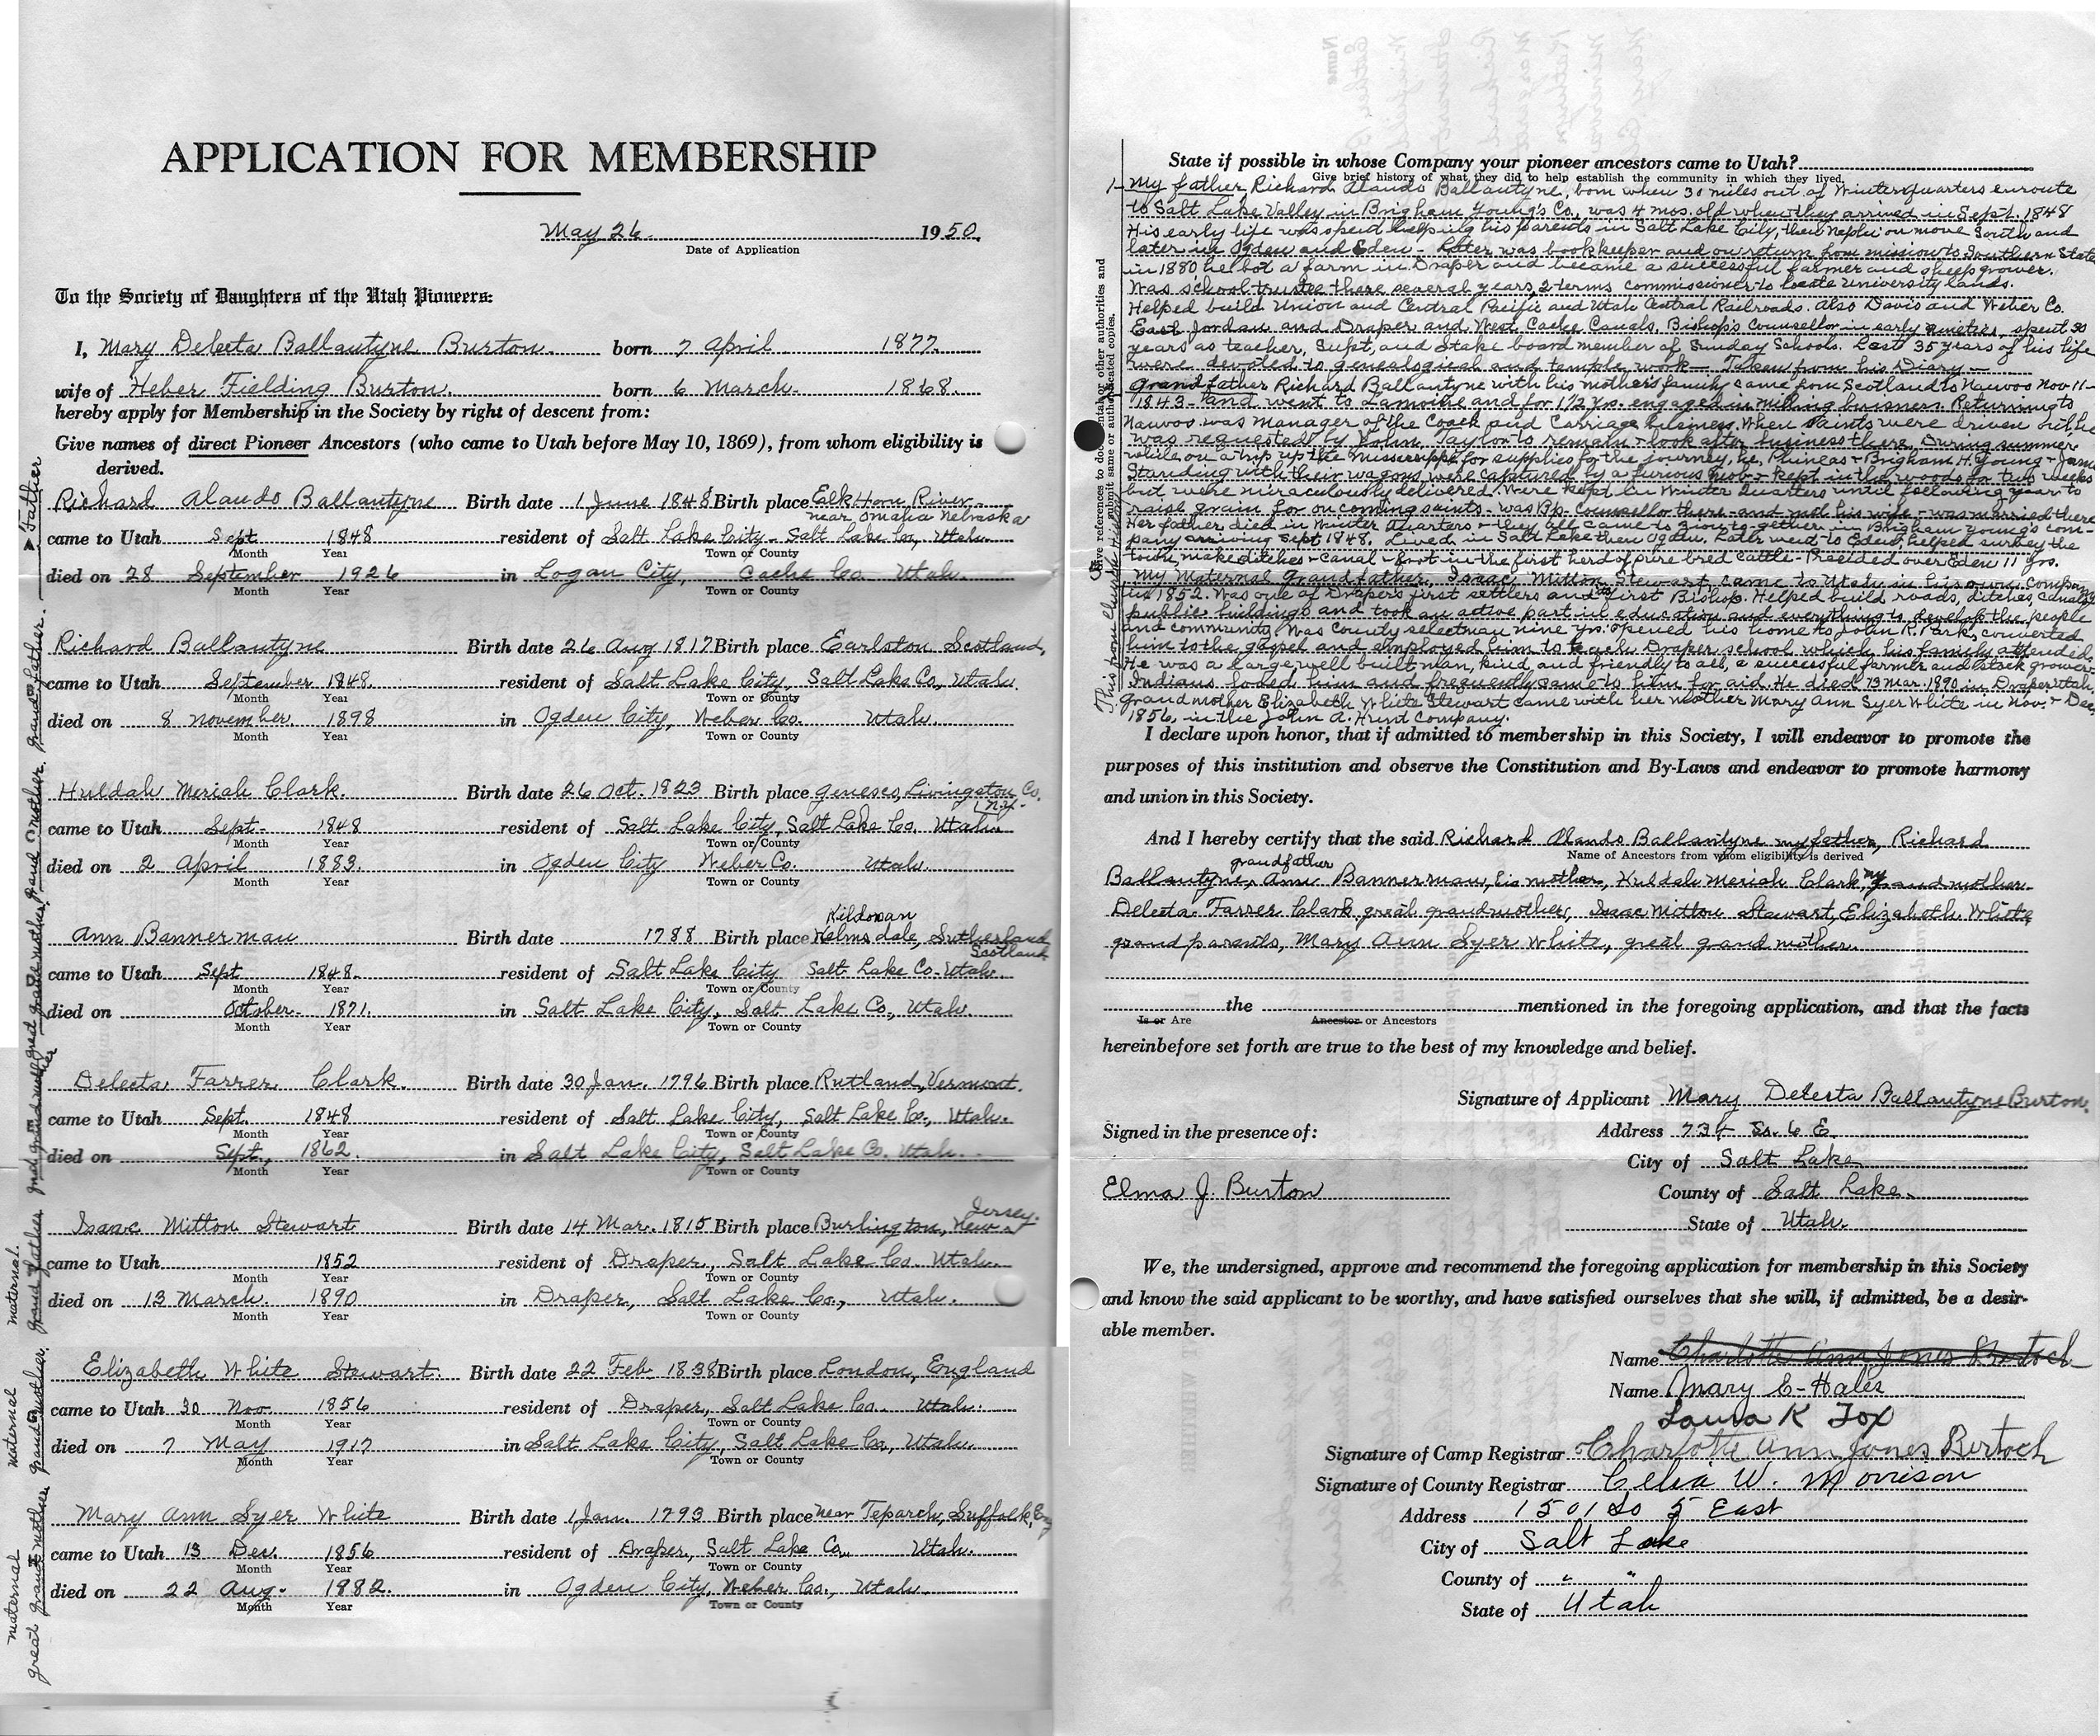 APPLICATION FOR MEMBERSHIP
May 26 1950
Date of Application
To the Society of Daughters of the Utah Pioneers:
I, Mary Delecta Ballantyne Burton. born 7 April 1877.
wife of Heber Fielding Burton. born 6 March. 1868.
hereby apply for Membership in the Society by right of descent from:
Give names of direct Pioneer Ancestors (who came to Utah before May 10, 1869), from whom eligibility is
derived.
Father
Richard Alando Ballantyne Birth date 1 June 1848 Birth place Elk Horn River
near Omaha Nebraska
came to Utah Sept 1848 resident of Salt Lake City - Salt Lake Co, Utah.
Month Year Town or County
died on 28 September 1926 in Logan City, Cache Co. Utah.
Month Year Town or County
grand father.
Richard Ballantyne Birth date 26 Aug 1817 Birth place Earlston Scotland,
came to Utah September 1848. resident of Salt Lake City, Salt Lake Co., Utah.
Month Year Town or County
died on 8 November. 1898 in Ogden City, Weber Co. Utah.
Month Year Town or County
grand mother.
Huldah Meriah Clark. Birth date 26 Oct. 1823 Birth place Geneseo, Livingston Co.
N.Y.
came to Utah Sept- 1848 resident of Salt Lake City, Salt Lake Co. Utah.
Month Year Town or County
died on 2 April 1883. in Ogden City Weber Co. Utah.
Month Year Town or County
great grand mother
Kildonan
Ann Bannerman Birth date 1788 Birth place Helmsdale, Sutherland
Scotland
came to Utah Sept 1848. resident of Salt Lake City Salt Lake Co. Utah.
Month Year Town or County
died on October- 1871. in Salt Lake City, Salt Lake Co., Utah.
Month Year Town or County
great grand mother
Delecta Farrer Clark. Birth date 30 Jan. 1796 Birth place Rutland, Vermont.
came to Utah Sept. 1848 resident of Salt Lake City, Salt Lake Co., Utah.
Month Year Town or County
died on Sept., 1862. in Salt Lake City, Salt Lake Co. Utah.
Month Year Town or County
maternal grand father
Jersey.
Isaac Mitton Stewart Birth date 14 Mar. 1815 Birth place Burlington, New
came to Utah 1852 resident of Draper, Salt Lake Co. Utah.
Month Year Town or County
died on 13 March. 1890 in Draper, Salt Lake Co., Utah.
Month Year Town or County
maternal grand mother.
Elizabeth White Stewart. Birth date 22 Feb 1838 Birth place London, England
came to Utah 30 Nov 1856 resident of Draper, Salt Lake Co. Utah.
Month Year Town or County
died on 7 May 1917 in Salt Lake City, Salt Lake Co, Utah.
Month Year Town or County
maternal great grand mother
Mary Ann Syer White Birth date 1 Jan. 1793 Birth place near Teparch, Suffolk, Eng
came to Utah 13 Dec. 1856 resident of Draper, Salt Lake Co, Utah.
Month Year Town or County
died on 22 Aug. 1882. in Ogden City, Weber Co., Utah.
Month Year Town or County
State if possible in whose Company your pioneer ancestors came to Utah?
Give brief history of what they did to help establish the community in which they lived.
1- My father, Richard Alando Ballantyne, born when 30 miles out of Winter quarters enroute
to Salt Lake Valley in Brigham Young's Co., was 4 mos. old when they arrived in Sept. 1848
His early life was spent helping his parents in Salt Lake City, then Nephi on move South and
later in Ogden and Eden - Later was bookkeeper and on return from mission to Southern State
in 1880, he bot a farm in Draper and became a successful farmer and sheep grower.
Was school trustee there several years, 2 terms commissioner to locate University lands.
Helped build Union and Central Pacific and Utah Central Railroads. Also Davis and Weber Co.
East Jordan and Draper and West Cache Canals. Bishop's Counsellor in early nineties, spent 30
years as teacher, Supt, and Stake board member of Sunday Schools. Last 35 years of his life
were devoted to genealogical and temple work - Taken from his Diary -
Grandfather Richard Ballantyne with his mother's family came from Scotland to Nauvoo Nov 11-
1843 - and went to Lamoine and for 1 1/2 yrs. engaged in milling business. Returning to
Nauvoo was manager of the Coach and Carriage business. When Saints were driven out he
was requested by John Taylor to remain & look after business there. During summer
while on a trip up the Mississippi for supplies for the journey, he, Phineas & Brigham H. Young & James
Standing with their wagons were captured by a furious mob & kept in the woods for two weeks
but were miraculously delivered. Were kept in Winter Quarters until following year to
raise grain for oncoming saints - was Bp. Counsellor there and met his wife - was married there
Her father died in Winter Quarters - they all came to Zion to-gether in Brigham Young's com-
pany arriving Sept 1848. Lived in Salt Lake then Ogden. Later went to Eden, helped survey the
town, make ditches - canal - brot in the first herd of pure bred cattle - Presided over Eden 11 yrs.
My Maternal Grandfather, Isaac Mitton Stewart, came to Utah in his own Company
in 1852. Was one of Draper's first settlers and its first Bishop. Helped build roads, ditches, canals,
public buildings and took an active part in education and everything to develop the people
and community. Was County selectman nine yrs. opened his home to John R. Park, converted
him to the gospel and employed him to teach Draper school which his family attended.
He was a large well built man, kind and friendly to all, a successful farmer and stock grower.
Indians loved him and frequently came to him for aid. He died 13 Mar. 1890 in Draper Utah,
Grandmother Elizabeth White Stewart came with her mother Mary Ann Syer White in Nov. & Dec,
1856, in the John A. Hunt Company.
Give references to documental or other authorities and
submit same or authenticated copies.
This from Church
I declare upon honor, that if admitted to membership in this Society, I will endeavor to promote the
purposes of this institution and observe the Constitution and By-Laws and endeavor to promote harmony
and union in this Society.
And I hereby certify that the said Richard Alando Ballantyne my father, Richard
Name of Ancestors from whom eligibility is derived
grandfather
Ballantyne, Ann Bannerman, his mother, Huldah Meriah Clark, my grandmother
Delecta Farrer Clark great grandmother, Isaac Mitton Stewart, Elizabeth White
grand parents, Mary Ann Syer White, great grand mother.
the mentioned in the foregoing application, and that the facts
Is or Are Ancestor or Ancestors
hereinbefore set forth are true to the best of my knowledge and belief.
Signature of Applicant Mary Delecta Ballantyne Burton,
Signed in the presence of: Address 734 So. 6 E.
City of Salt Lake
Elma J. Burton County of Salt Lake.
State of Utah.
We, the undersigned, approve and recommend the foregoing application for membership in this Society
and know the said applicant to be worthy, and have satisfied ourselves that she will, if admitted, be a desir-
able member.
Name Charlotte Ann Jones Bertoch
Name Mary E. Hales
Laura K Fox
Signature of Camp Registrar Charlotte Ann Jones Bertoch
Signature of County Registrar Celia W. Morrison
Address 1501 So 5 East
City of Salt Lake
County of " "
State of Utah